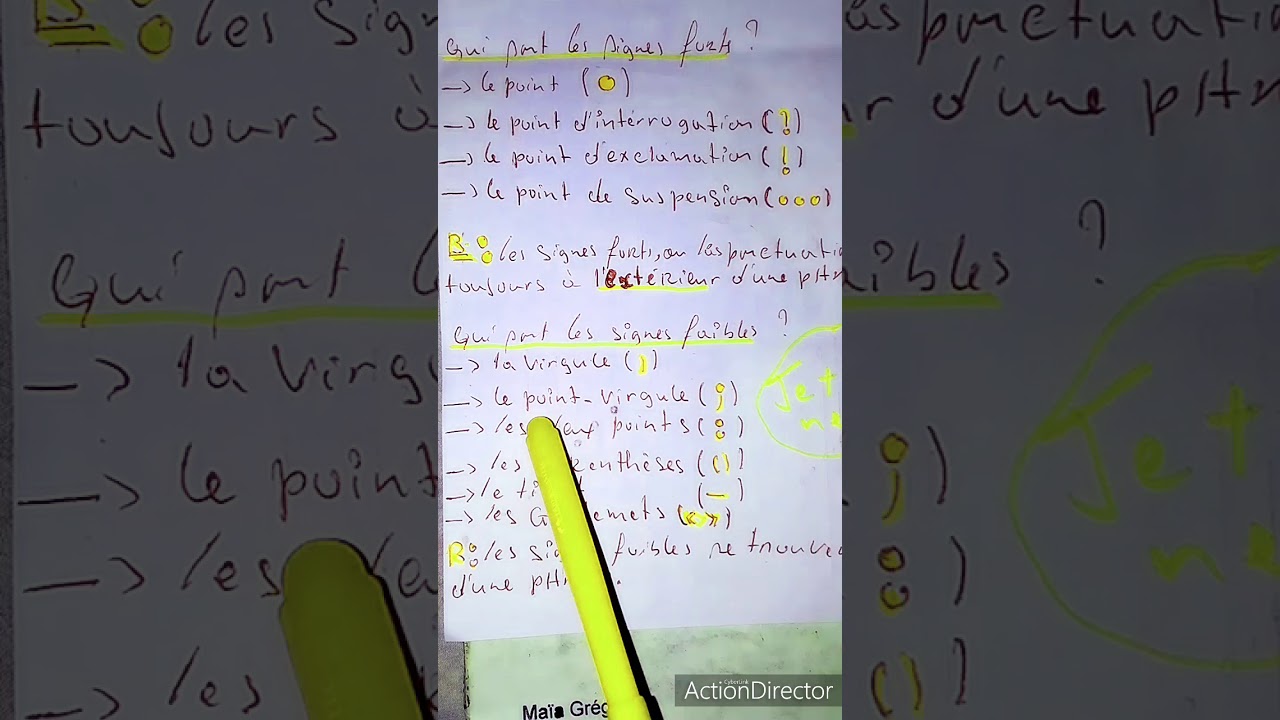 Qui sont les signes forts ?
→ le point (.)
→ le point d'intérrogation (?)
→ le point d'exclamation (!)
→ le point de suspension (...)
R: les signes forts, ou las ponctuati
toujours à l'extérieur d'une pHr
Qui sont les signes faibles ?
→ la virgule (,)
→ le point-virgule (;)
→ les points (:)
→ les ( )
→ le (—)
→ les (« »)
R: les faibles se trouve
d'une
Je t
ne
Maïa Grég
CyberLink
ActionDirector